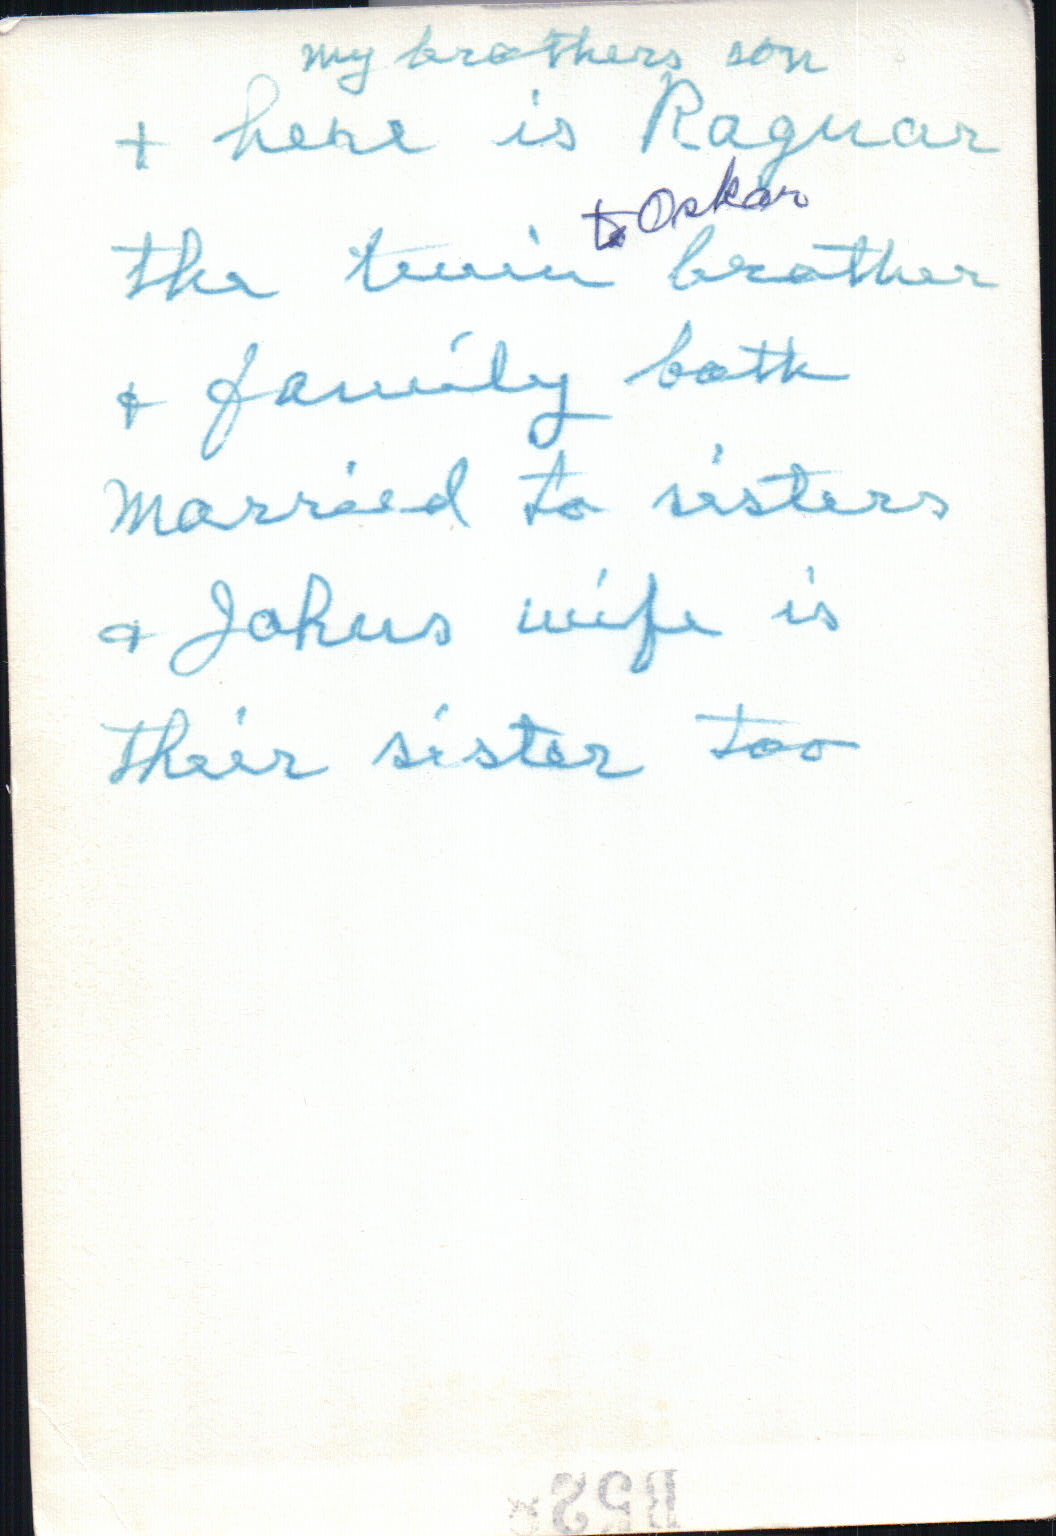 my brothers son
+ here is Ragnar
to Oskar
the twin brother
& family both
married to sisters
& Johns wife is
their sister too